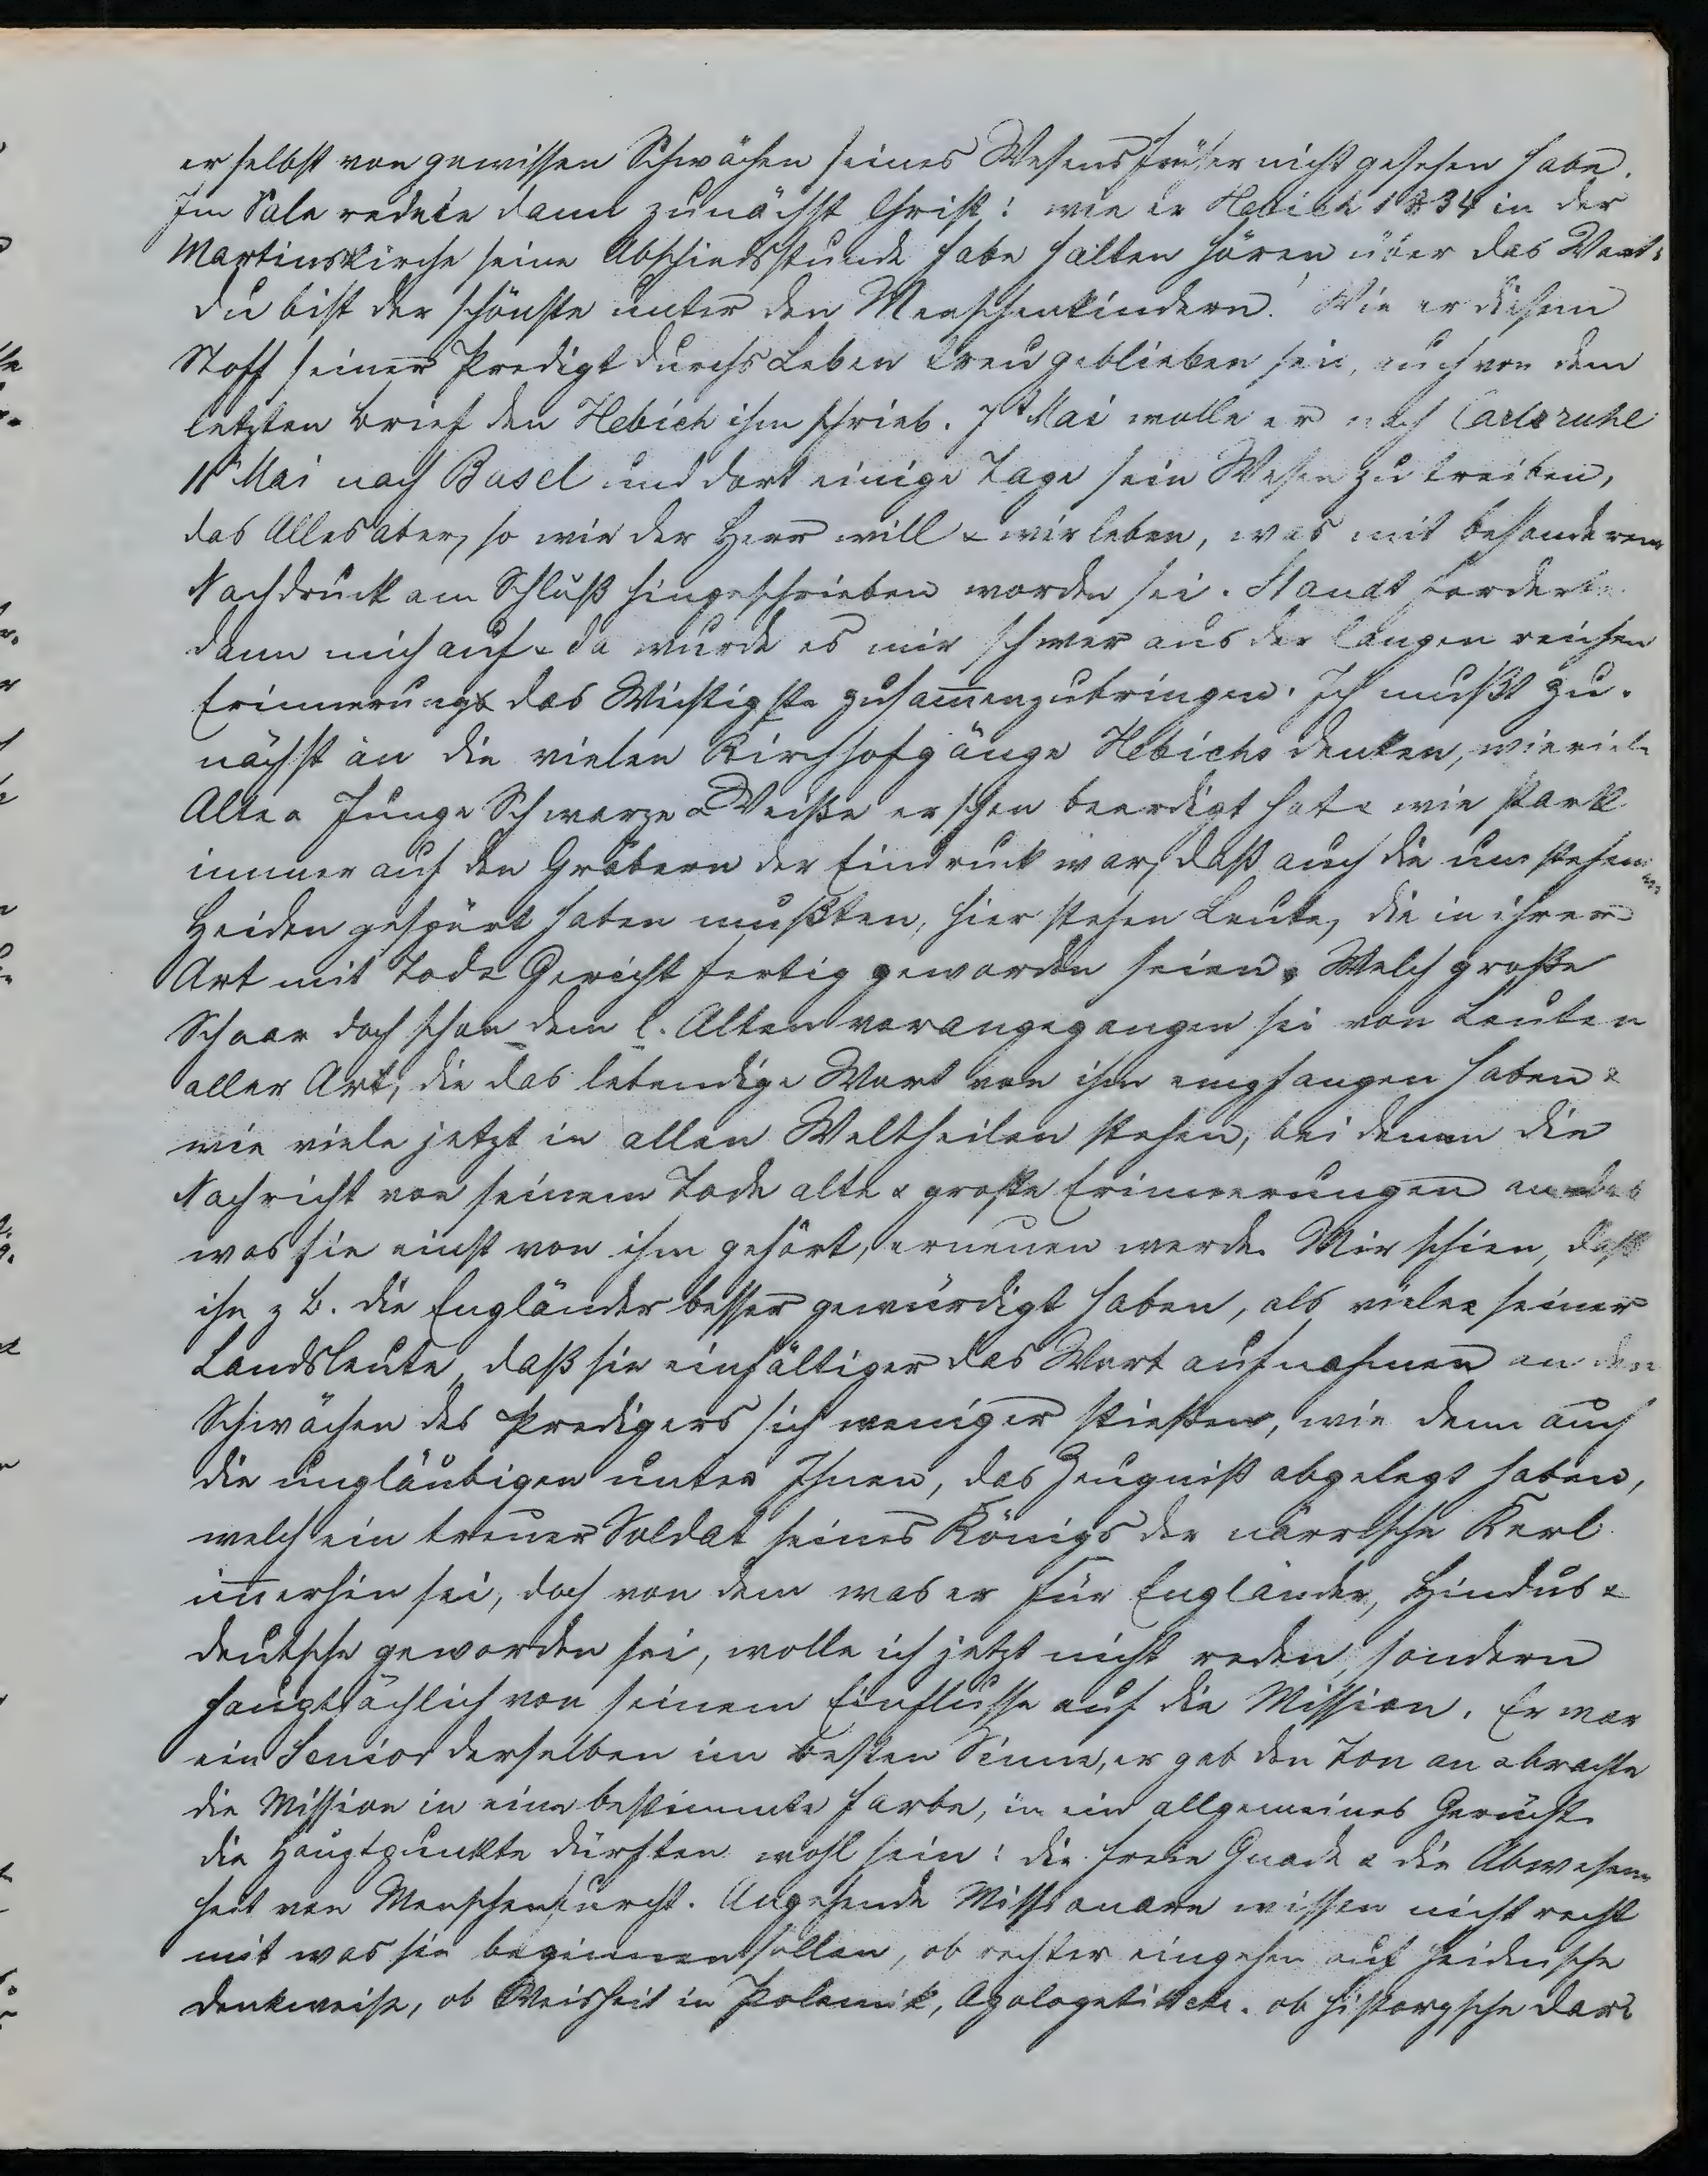 er selbst von gewissen Schwächen seines Wesens früher nicht gesehen habe.
Im Sale redete dann zunächst Christ: wie er Hebich 1834 in der
Martinskirche seine Abschiedsstunde habe halten hören über das Wort:
du bist der schönste unter den Menschenkindern! Wie er diesem
Stoff seiner Predigt durchs Leben treu geblieben sei, auch von dem
letzten Brief den Hebich ihm schrieb. 7t Mai wolle er nach Carlsruhe
11t Mai nach Basel und dort einige Tage sein Wesen zu treiben,
das Alles aber, so wie der Herr will & wir leben, was mit besonderem
Nachdruck am Schluß hingeschrieben worden sei. Staudt forderte
dann mich auf & da wurde es mir schwer aus der langen reichen
Erinnerung das Wichtigste zusam̅enzubringen. Ich mußt zu-
nächst an die vielen Kirchhofgänge Hebichs denken, wieviele
Alte & Junge Schwarze & Weiße er schon beerdigt hat & wie stark
immer auf den Gräbern der Eindruck war, daß auch die umstehenden
Heiden gespürt haben mußten, hier stehen Leute, die in ihrer
Art mit Tod & Gericht fertig geworden seien. Welch große
Schaar doch schon dem l. Alten vorangegangen sei von Leuten
aller Art, die das lebendige Wort von ihm empfangen haben &
wie viele jetzt in allen Welttheilen stehen, bei denen die
Nachricht von seinem Tode alte & große Erinnerungen an das
was sie einst von ihm gehört, erneuen werde. Mir schien, daß
ihn z B. die Engländer besser gewürdigt haben, als viele seiner
Landsleute, daß sie einfältiger das Wort aufnahmen an den
Schwächen des Predigers sich weniger stießen, wie denn auch
die ungläubigen unter Ihnen, das Zeugniß abgelegt haben,
welch ein treuer Soldat seines Königs der närrische Kerl
im̅erhin sei, doch von dem was er für Engländer, Hindus &
deutsche geworden sei, wolle ich jetzt nicht reden, sondern
hauptsächlich von seinem Einflusse auf die Mission. Er war
ein Senior derselben im besten Sinne, er gab den Ton an & brachte
die Mission in eine bestimmte Farbe, in ein allgemeines Gerücht.
die Hauptpunkte dürften wohl sein: die freie Gnade & die Abwesen-
heit von Menschenfurcht. Angehende Missionare wissen nicht recht
mit was sie beginnen sollen, ob rechter eingehen auf heidnische
Denkweise, ob Weisheit in Polemik, Apologetik etc. ob historische Dar-